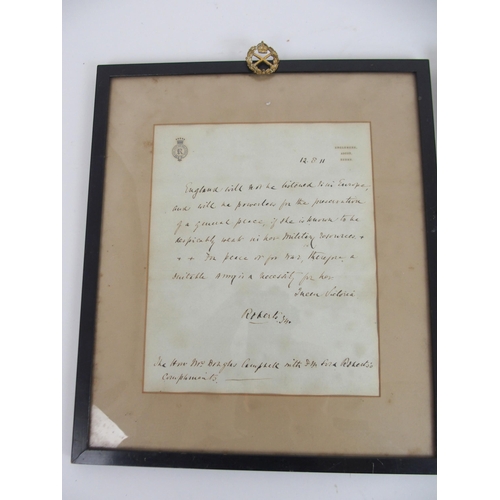 ENGLEMERE,
ASCOT,
BERKS.
12. 11. 11
England will not be listened to in Europe,
and will be powerless for the preservation
of a general peace, if she is known to be
despicably weak in her Military resources +
+ + For peace or for War, therefore, a
suitable Army is a necessity for her
Queen Victoria
Roberts, FM.
The Honr. Mrs Douglas Campbell with F.M. Lord Roberts's
Compliments.